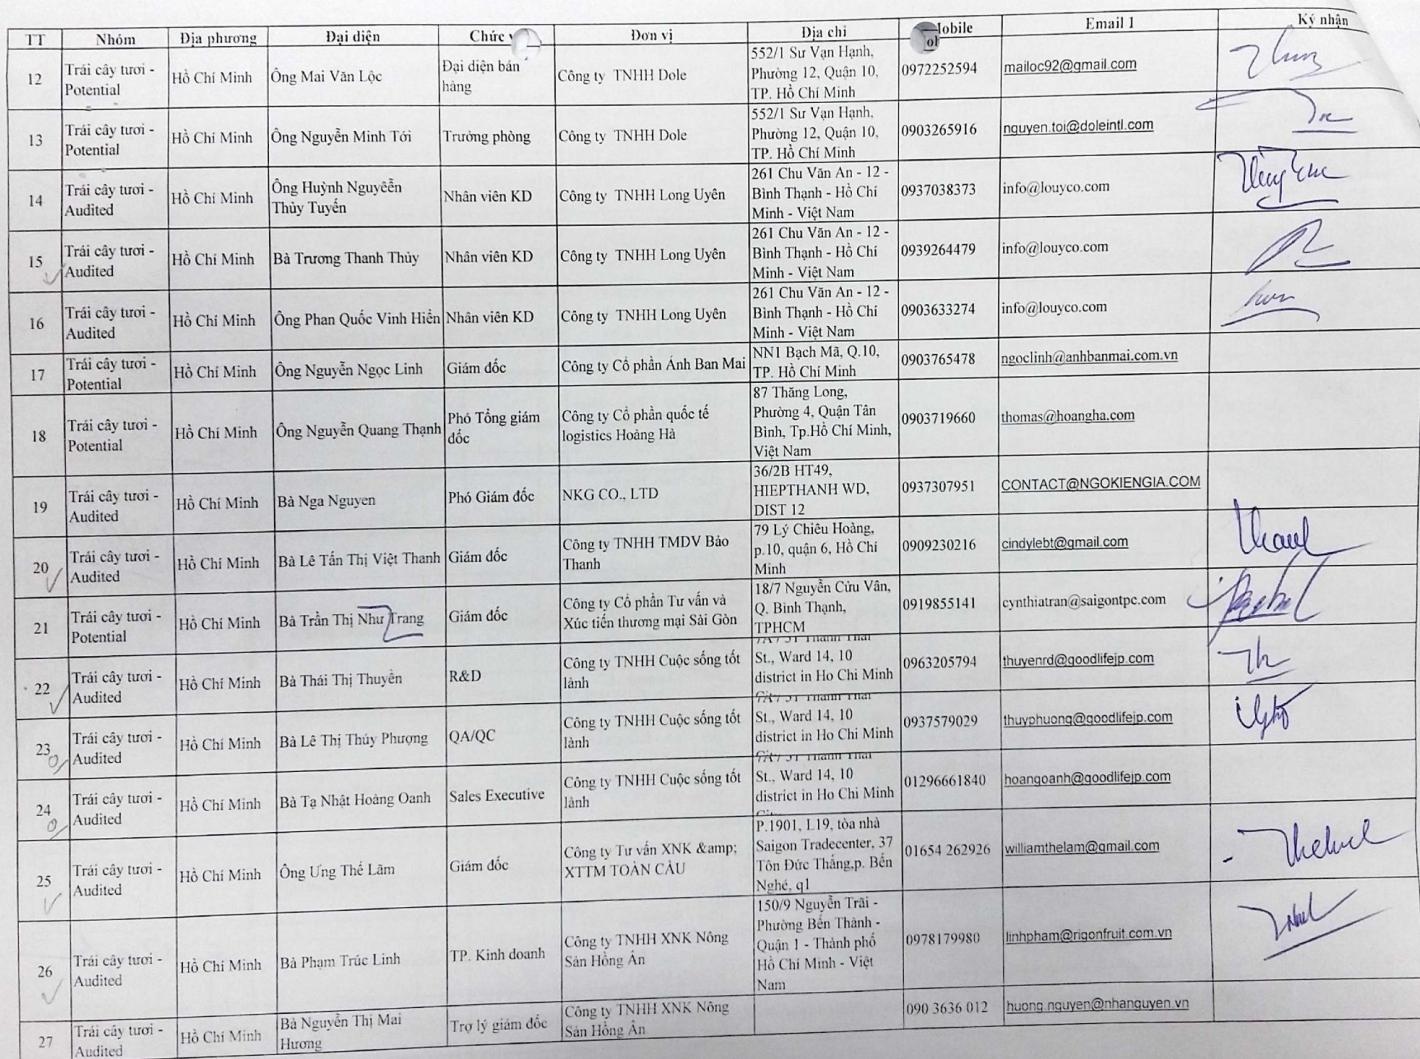 TT Nhóm Địa phương Đại diện Chức Đơn vị Địa chỉ Mobile Email 1 Ký nhận
12 Trái cây tươi - Potential Hồ Chí Minh Ông Mai Văn Lộc Đại diện bán hàng Công ty TNHH Dole 552/1 Sư Vạn Hạnh, Phường 12, Quận 10, TP. Hồ Chí Minh 0972252594 mailoc92@gmail.com
13 Trái cây tươi - Potential Hồ Chí Minh Ông Nguyễn Minh Tới Trưởng phòng Công ty TNHH Dole 552/1 Sư Vạn Hạnh, Phường 12, Quận 10, TP. Hồ Chí Minh 0903265916 nguyen.toi@doleintl.com
14 Trái cây tươi - Audited Hồ Chí Minh Ông Huỳnh Nguyêễn Thủy Tuyến Nhân viên KD Công ty TNHH Long Uyên 261 Chu Văn An - 12 - Bình Thạnh - Hồ Chí Minh - Việt Nam 0937038373 info@louyco.com
15 Trái cây tươi - Audited Hồ Chí Minh Bà Trương Thanh Thủy Nhân viên KD Công ty TNHH Long Uyên 261 Chu Văn An - 12 - Bình Thạnh - Hồ Chí Minh - Việt Nam 0939264479 info@louyco.com
16 Trái cây tươi - Audited Hồ Chí Minh Ông Phan Quốc Vinh Hiển Nhân viên KD Công ty TNHH Long Uyên 261 Chu Văn An - 12 - Bình Thạnh - Hồ Chí Minh - Việt Nam 0903633274 info@louyco.com
17 Trái cây tươi - Potential Hồ Chí Minh Ông Nguyễn Ngọc Linh Giám đốc Công ty Cổ phần Ánh Ban Mai NN1 Bạch Mã, Q.10, TP. Hồ Chí Minh 0903765478 ngoclinh@anhbanmai.com.vn
18 Trái cây tươi - Potential Hồ Chí Minh Ông Nguyễn Quang Thạnh Phó Tổng giám đốc Công ty Cổ phần quốc tế logistics Hoàng Hà 87 Thăng Long, Phường 4, Quận Tân Bình, Tp.Hồ Chí Minh, Việt Nam 0903719660 thomas@hoangha.com
19 Trái cây tươi - Audited Hồ Chí Minh Bà Nga Nguyen Phó Giám đốc NKG CO., LTD 36/2B HT49, HIEPTHANH WD, DIST 12 0937307951 CONTACT@NGOKIENGIA.COM
20 Trái cây tươi - Audited Hồ Chí Minh Bà Lê Tấn Thị Việt Thanh Giám đốc Công ty TNHH TMDV Bảo Thanh 79 Lý Chiêu Hoàng, p.10, quận 6, Hồ Chí Minh 0909230216 cindylebt@gmail.com
21 Trái cây tươi - Potential Hồ Chí Minh Bà Trần Thị Như Trang Giám đốc Công ty Cổ phần Tư vấn và Xúc tiến thương mại Sài Gòn 18/7 Nguyễn Cửu Vân, Q. Bình Thạnh, TPHCM 0919855141 cynthiatran@saigontpc.com
22 Trái cây tươi - Audited Hồ Chí Minh Bà Thái Thị Thuyền R&D Công ty TNHH Cuộc sống tốt lành St., Ward 14, 10 district in Ho Chi Minh 0963205794 thuyenrd@goodlifejp.com
23 Trái cây tươi - Audited Hồ Chí Minh Bà Lê Thị Thúy Phượng QA/QC Công ty TNHH Cuộc sống tốt lành St., Ward 14, 10 district in Ho Chi Minh 0937579029 thuyphuong@goodlifejp.com
24 Trái cây tươi - Audited Hồ Chí Minh Bà Tạ Nhật Hoàng Oanh Sales Executive Công ty TNHH Cuộc sống tốt lành St., Ward 14, 10 district in Ho Chi Minh 01296661840 hoangoanh@goodlifejp.com
25 Trái cây tươi - Audited Hồ Chí Minh Ông Ưng Thế Lãm Giám đốc Công ty Tư vấn XNK &amp; XTTM TOÀN CẦU P.1901, L19, tòa nhà Saigon Tradecenter, 37 Tôn Đức Thắng,p. Bến Nghé, q1 01654 262926 williamthelam@gmail.com
26 Trái cây tươi - Audited Hồ Chí Minh Bà Phạm Trúc Linh TP. Kinh doanh Công ty TNHH XNK Nông Sản Hồng Ân 150/9 Nguyễn Trãi - Phường Bến Thành - Quận 1 - Thành phố Hồ Chí Minh - Việt Nam 0978179980 linhpham@rigonfruit.com.vn
27 Trái cây tươi - Audited Hồ Chí Minh Bà Nguyễn Thị Mai Hương Trợ lý giám đốc Công ty TNHH XNK Nông Sản Hồng Ân 090 3636 012 huong.nguyen@nhanguyen.vn